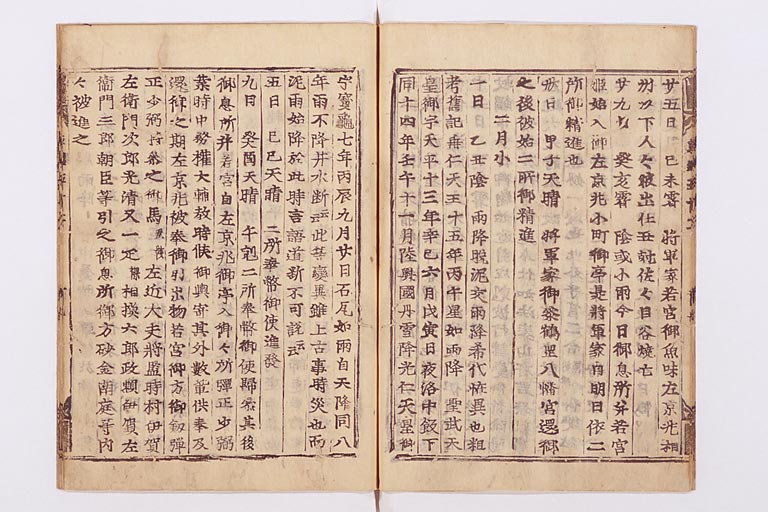 廿五日 己未霽 將軍家若宮御魚味左京兆相
州以下人々被出仕丑尅佐々目谷燒亡
廿九日 癸亥霽 陰或小雨今日御息所并若宮
姬始入御左京兆小町御亭是將軍家自明日依二
所御精進也
卅日 甲子天晴 將軍家御參鶴岳八幡宮還御
之後被始二所御精進
二月小
一日 乙丑陰 雨降晩泥交雨降希代恠異也粗
考舊記垂仁天王十五年丙午星如雨降 聖武天
皇御宇天平十三年辛巳六月戊寅日夜洛中飯下
同十四年壬午十一月陸奧國丹雪降光仁天皇御
宇寳龜七年丙辰九月廿日石瓦如雨自天降同八
年雨不降井水斷云云此等變異雖上古事時災也而
泥雨始降於此時言語道斷不可説云云
五日 己巳天晴 二所奉幣御使進發
九日 癸酉天晴 午剋二所奉幣御使歸參其後
御息所并若宮自左京兆御亭入御々所彈正少弼
業時中務權大輔教時候御輿寄其外數輩供奉及
還御之期左京兆被奉御引出物若宮御方御釼彈
正少弼持參之御馬置鞍左近大夫將監時村伊賀
左衛門次郎光清又一疋同相模六郎政頼伊賀左
衛門三郎朝臣等引之御息所御方砂金南庭等内
々被進之